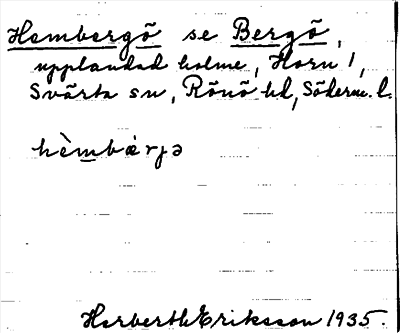 Hembergö se Bergö,
upplandad holme, Horn 1,
Svärta sn, Rönö hd, Söderm. l.
hèmbærjə
Herbert Eriksson 1935.